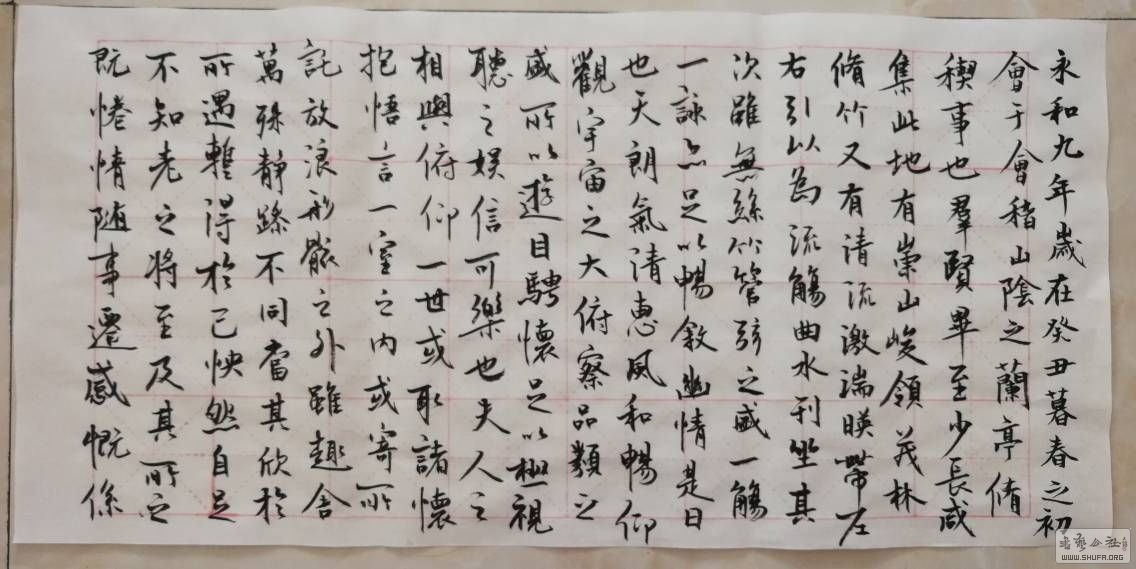 永和九年歲在癸丑暮春之初
會于會稽山陰之蘭亭脩
稧事也羣賢畢至少長咸
集此地有崇山峻領茂林
脩竹又有清流激湍暎帶左
右引以為流觴曲水列坐其
次雖無絲竹管弦之盛一觴
一詠亦足以暢敘幽情是日
也天朗氣清惠風和暢仰
觀宇宙之大俯察品類之
盛所以遊目騁懷足以極視
聽之娛信可樂也夫人之
相與俯仰一世或取諸懷
抱悟言一室之內或寄所
託放浪形骸之外雖趣舍
萬殊靜躁不同當其欣於
所遇蹔得於己怏然自足
不知老之將至及其所之
既惓情随事遷感慨係
WWW.SHUFA.ORG